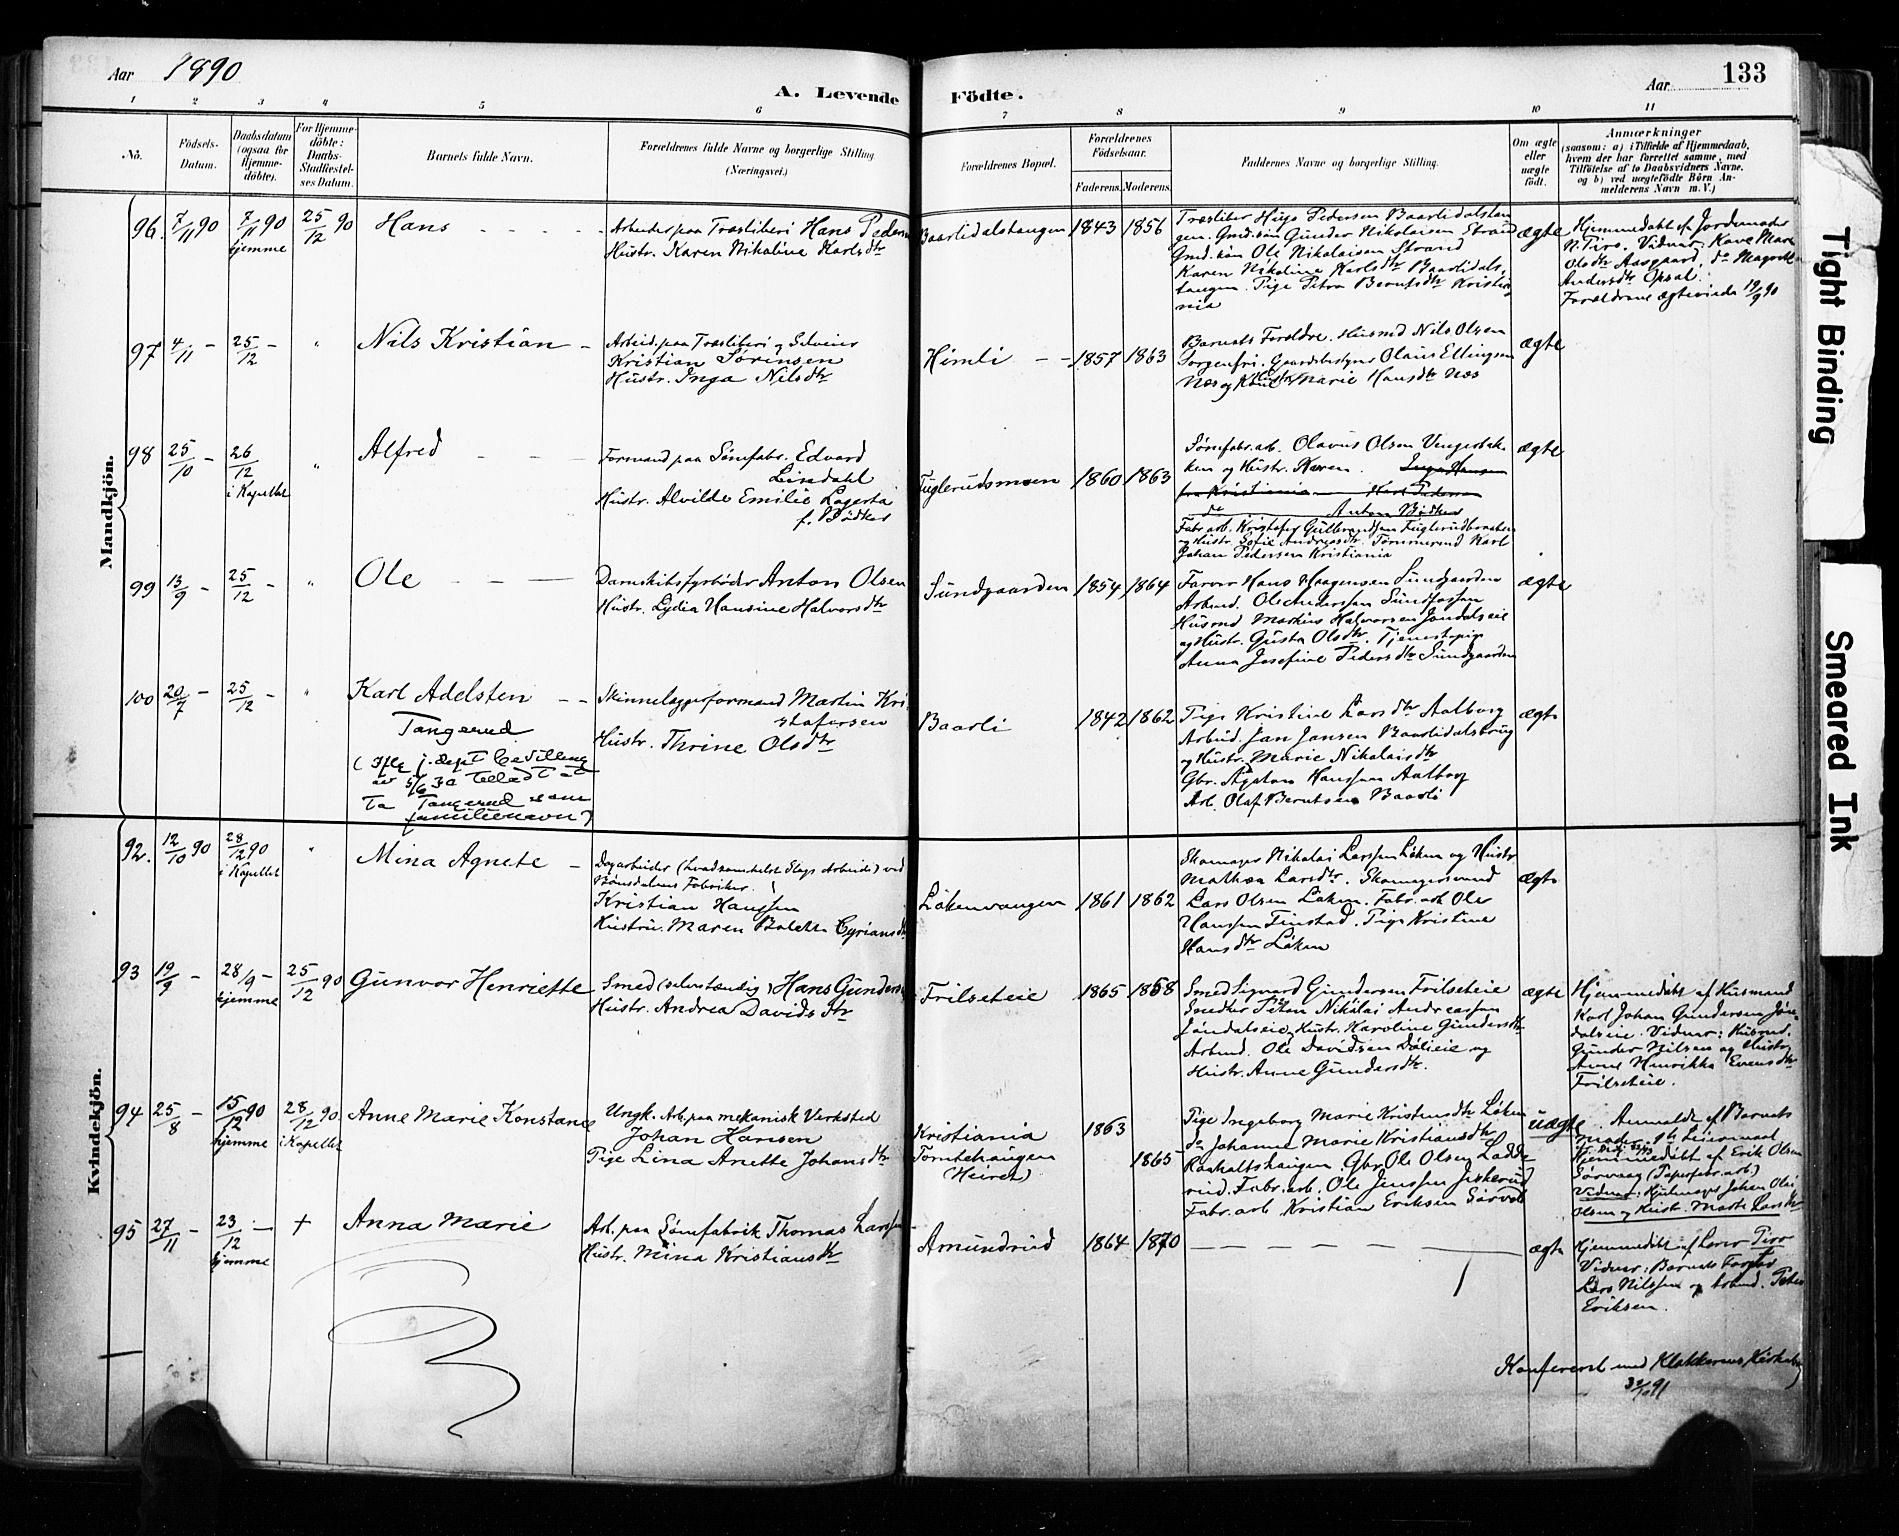 Aar 1890
A. Levende Födte.
Aar 133
1 2 3 4 5 6 7 8 9 10 11
Nö.
Födsels-
Datum.
Daabsdatum
(ogsaa for
Hjemme-
döbte).
For Hjemme-
döbte:
Daabs-
Stadfæstel-
ses Datum.
Barnets fulde Navn.
Forældrenes fulde Navne og borgerlige Stilling
(Næringsvei.)
Forældrenes Bopæl.
Forældrenes
Födselsaar.
Faderens. Moderens.
Faddernes Navne og borgerlige Stilling.
Om ægte
eller
uægte
født.
Anmærkninger
(saasom: a) i Tilfælde af Hjemmedaab,
hvem der har forrettet samme, med
Tilföielse af to Daabsvidners Navne,
og b) ved uægtefödte Börn An-
melderens Navn m. V.)
Mandkjön.
96 7/11 90 7/11 90 25/12 90 Hans
hjemme
Arbeider paa Træsliberi Hans Peders
Hustr. Karen Nikoline Karlsdtr
Baarlidalstangen 1843 1856
Træsliber Hugo Pedersen Baarlidalstan
gen. Grnd.søn Gunder Nikolaisen Strand
Grnd.søn Ole Nikolaisen Strand
Karen Nikoline Karlsdtr Baarlidals
tangen. Pige Petra Berntsdtr Kristia
nia
ægte
Hjemmedøbt af Jordemoder
N. Tiro. Vidner: Kave Mare
Olsdtr Aasgaard, do
Andersdtr Opsal.
Forældrene ægteviede 19/9 90
97 4/11 25/12 " Nils Kristian
Arbeid. paa Træsliberi
Kristian Sörensen
Hustr. Inga Nilsdtr
Himli 1857 1863
Barnets Forældre. Husmd Nils Olsen
Sorgenfri. Gaardsbestyrer Olaus Ellingsen
Næs og Hustr Marie Hansdtr Næs
ægte
98 25/10 26/12 " Alfred
i Kapellet
Formand paa Sömfabr. Edvard
Lindahl
Hustr. Alvilde Emilie Lagerta
f. Bödker
Fuglerudsmoen 1860 1863
Sömfabr.arb. Olavus Olsen Vengerbak-
ken og Hustr. Karen. Inga Hansen
fra Kristiania Karl Pedersen
do Anton Bödker
Fabr arb. Kristofer Gulbrandsen Fuglerudbraaten
og Hustr. Sofie Andreasdtr. Tömmermd Karl
Johan Pedersen Kristiania
ægte
99 13/9 25/12 " Ole
Damskibsfyrböder Anton Olsen
Hustr. Lydia Hansine Halvorsdtr
Sundgaarden 1854 1864
Farver Hans Haagensen Sundgaarden
Arbmd. Ole Anderssen Sundfossen
Husmd Markus Halvorsen Jöndalseie
og Hustr. Gusta Olsdtr. Tjenestepige
Anna Josefine Pedersdtr Sundgaarden
ægte
100 20/7 25/12 " Karl Adelsten
Tangerud
(Iflg j.dept bevilling
av 5/6 30 tilladt at
ta Tangerud som
familienavn)
Skinnelæggerformand Martin Kri-
stofersen
Hustr. Thrine Olsdtr
Baarli 1842 1862
Pige Kristine Larsdtr Aalborg
Arbmd. Jan Jansen Baarlidalsbrug
og Hustr. Marie Nikolaisdtr
Gbr. Agaton Hanssen Aalborg
Arb. Olaf Berntsen Baarli
ægte
Kvindekjön.
92. 12/10 90 28/12 90 " Mina Agnete
i Kapellet
Dagarbeider (hvadsomhelst Slags Arbeide) ved
Bönsdalens Fabriker
Kristian Hanssen
Hustru. Maren Bolette Cyriansdtr
Lökenvangen 1861 1862
Skomager Nikolai Larssen Löken og Hustr
Mathea Larsdtr. Skomagersvend
Lars Olsen Löken. Fabr.arb Ole
Hanssen Finstad. Pige Kristine
Hansdtr Löken
ægte
93 19/9 28/9 25/12 90 Gunvor Henriette
hjemme
Smed (selvstændig) Hans Gunders
Hustr. Andrea Davidsdtr
Frilseteie 1865 1868
Smed Sigvard Gundersen Frilseteie
Snedker Peter Nikolai Andreassen
Jöndalseie og Hustr. Karoline Gundersdtr
Arbmd. Ole Davidsen Dölieie og
Hustr. Anne Gundersdtr.
ægte
Hjemmedøbt af Husmand
Karl Johan Gundersen Jön-
dalseie. Vidner: Husmd.
Gunder Nilsen og Hustr
Anne Henrikka Evensdtr
Frilseteie.
94 25/8 15/12 90 28/12 90 Anne Marie Konstance
hjemme i Kapellet
Ungk. Arb. paa mekanisk Verksted
Johan Hansen
Pige Lina Anette Johansdtr
Kristiania 1863
Tomtehaugen 1865
(Heiret)
Pige Ingeborg Marie Kristensdtr Löken
do Johanne Marie Kristiansdtr
Raaholtshaugen. Gbr. Ole Olsen Ladde-
rud. Fabr. arb. Ole Jenssen Jiskerud
Fabr.arb Kristian Eriksen
uægte
Anmeldt af Barnets
Moder.
Hjemmedøbt af Erik Olsen
(Papirfabr.arb)
Vidner: Johan Olai
Olsen og Hustr. Marte Larsdtr
95 27/11 23/12 + Anna Marie
hjemme
Arb. paa Sömfabrik Thomas Larsen
Hustr. Mina Kristiansdtr
Amundrud 1864 1870
ægte
Hjemmedøbt af Lærer Tiro
Vidner: Barnets Farfar
Lars Nilssen og Arbmd. Peter
Eriksen.
Konfereret med Klokkerens Kirkebog
91
Tight Binding
Smeared Ink